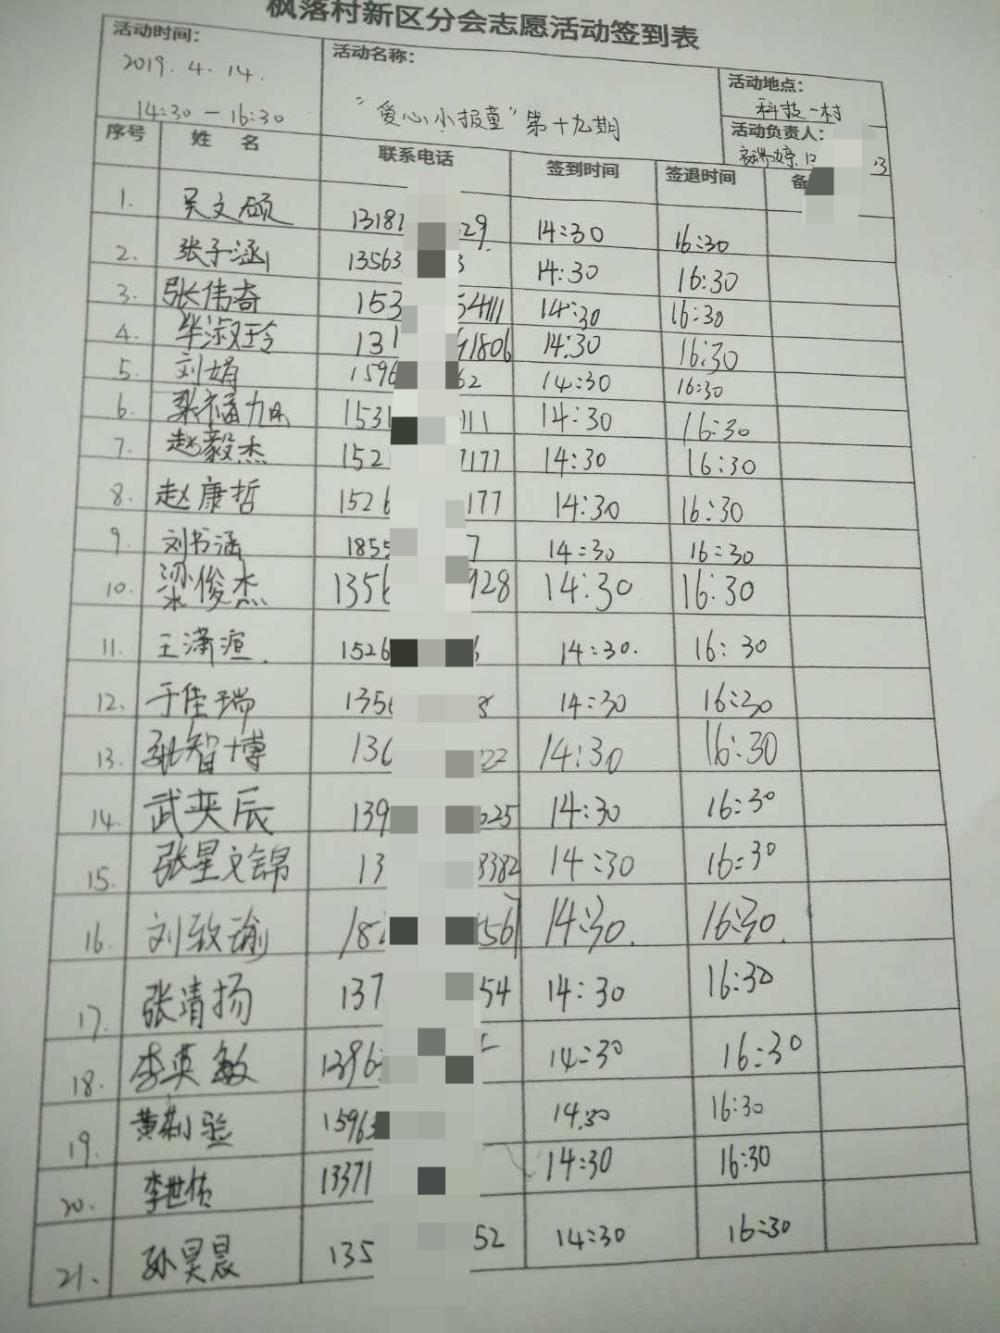 枫落村新区分会志愿活动签到表
活动时间:
2019.4.14.
14:30—16:30
活动名称:
"爱心小报童"第十九期
活动地点:
科技一村
活动负责人:
序号 姓名 联系电话 签到时间 签退时间 备
1. 吴文硕 13181 29 14:30 16:30
2. 张子涵 13563 3 14:30 16:30
3. 张伟奇 153 54111 14:30 16:30
4. 毕淑玲 131 91806 14:30 16:30
5. 刘娟 1596 62 14:30 16:30
6. 1531 111 14:30 16:30
7. 赵毅杰 152 7177 14:30 16:30
8. 赵康哲 1526 177 14:30 16:30
9. 刘书涵 1855 7 14:30 16:30
10. 梁俊杰 1356 928 14:30 16:30
11. 王潇渲. 1526 6 14:30. 16:30
12. 于佳瑞 1356 8 14:30 16:30
13. 智博 136 222 14:30 16:30
14. 武奕辰 139 025 14:30 16:30
15. 张星文锦 13 3382 14:30 16:30
16. 刘致瑜 182 556 14:30. 16:30.
17. 张清扬 137 54 14:30 16:30
18. 李英敏 13963 14:30 16:30
19. 黄 15963 14:30 16:30
20. 李世 13371 14:30 16:30
21. 孙昊晨 135 52 14:30 16:30